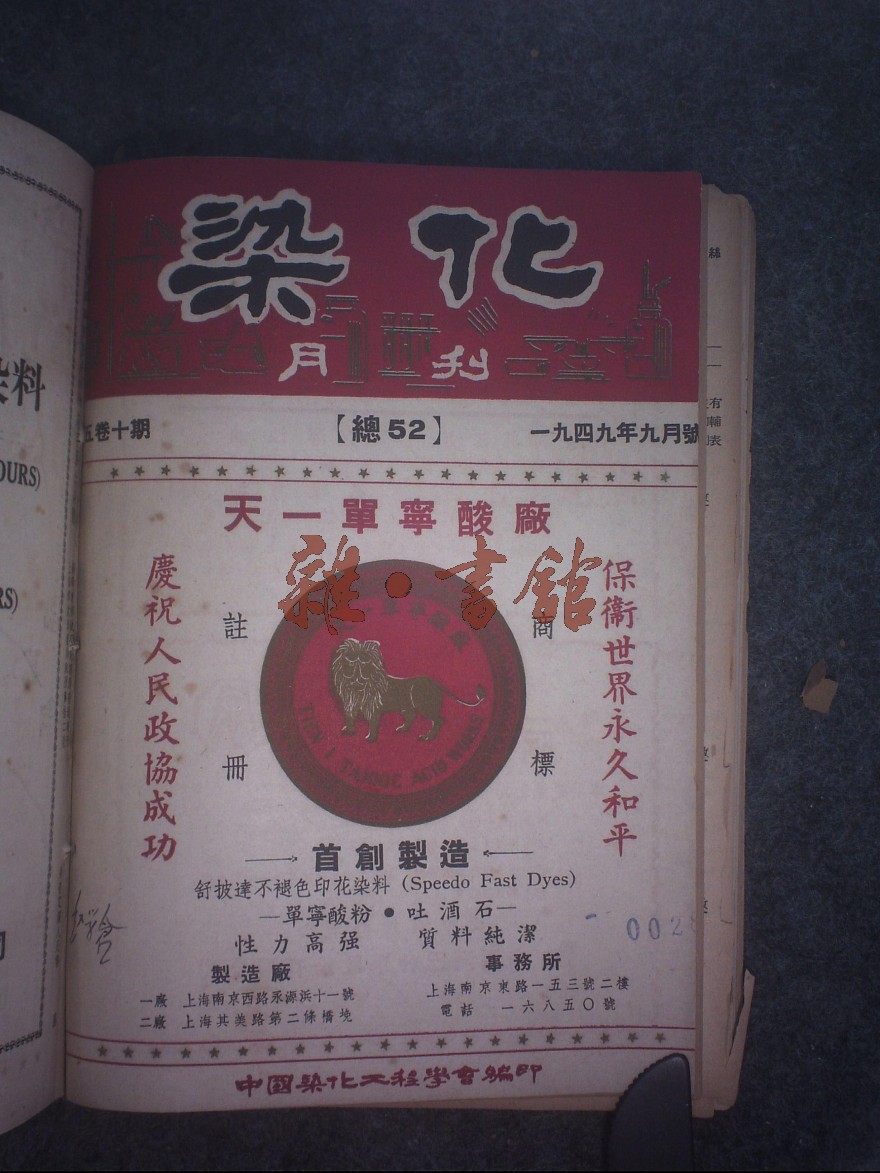 染化
月刊
五卷十期 【總52】 一九四九年九月號
天一單寧酸廠
保衞世界永久和平
慶祝人民政協成功
註冊
商標
TIEN I TANNIC ACID WORKS
雜·書館
首創製造
舒披達不褪色印花染料 (Speedo Fast Dyes)
—單寧酸粉•吐酒石—
性力高强 質料純潔
製造廠
一廠 上海南京西路永源浜十一號
二廠 上海其美路第二條橋境
事務所
上海南京東路一五三號二樓
電話 一六八五〇號
中國染化工程學會編印
002
料
OURS)
RS)